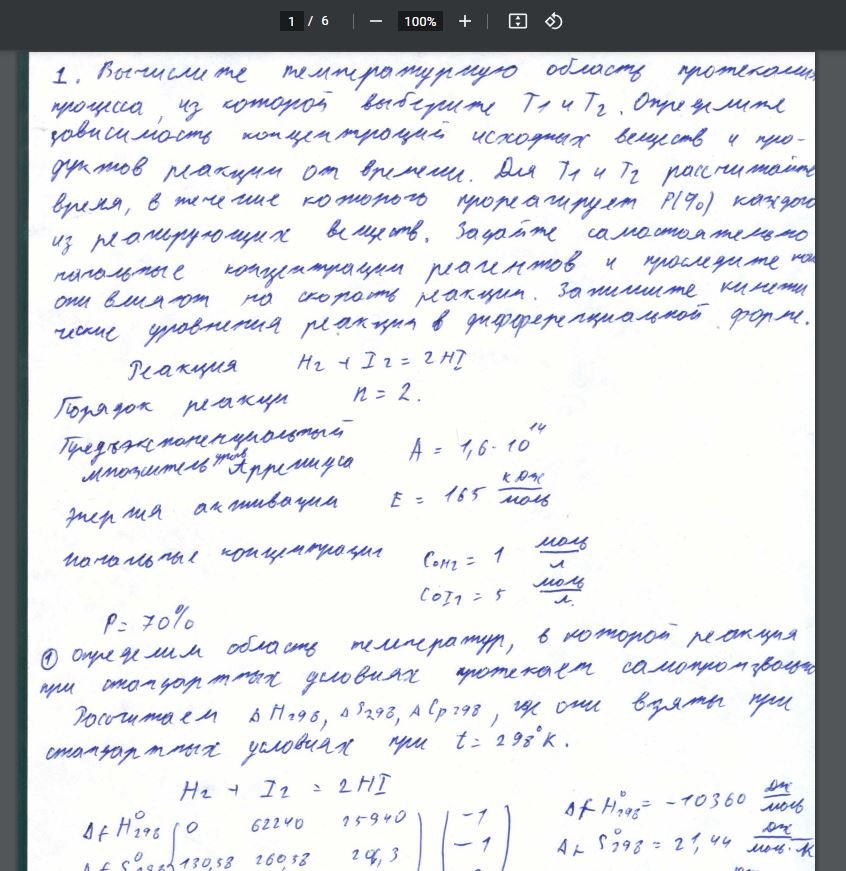 1 / 6 — 100% +
1. Вычислите температурную область протекания
процесса, из которой выберите T1 и T2. Определите
зависимость концентраций исходных веществ и про-
дуктов реакции от времени. Для T1 и T2 рассчитайте
время, в течение которого прореагирует P(%) каждого
из реагирующих веществ. Задайте самостоятельно
начальные концентрации реагентов и проследите как
они влияют на скорость реакции. Запишите кинети
ческие уравнения реакции в дифференциальной форме.
Реакция H2 + I2 = 2HI
Порядок реакци n = 2.
Предъэкспоненциальный
множитель Аррениуса A = 1,6·10^14
Энергия активации E = 165 кДж/моль
Начальные концентрации C0H2 = 1 моль/л
C0I2 = 5 моль/л.
P = 70%
① Определим область температур, в которой реакция
при стандартных условиях протекает самопроизвольно
Рассчитаем ΔH298, ΔS298, ΔCp298, где они взяты при
стандартных условиях при t = 298°K.
H2 + I2 = 2HI
ΔfH°298 0 62240 25940 -1 ΔfH°298 = -10360 Дж/моль
-1 ΔfS°298 = 21,44 Дж/моль·К
ΔfS°298 130,58 260,58 206,3